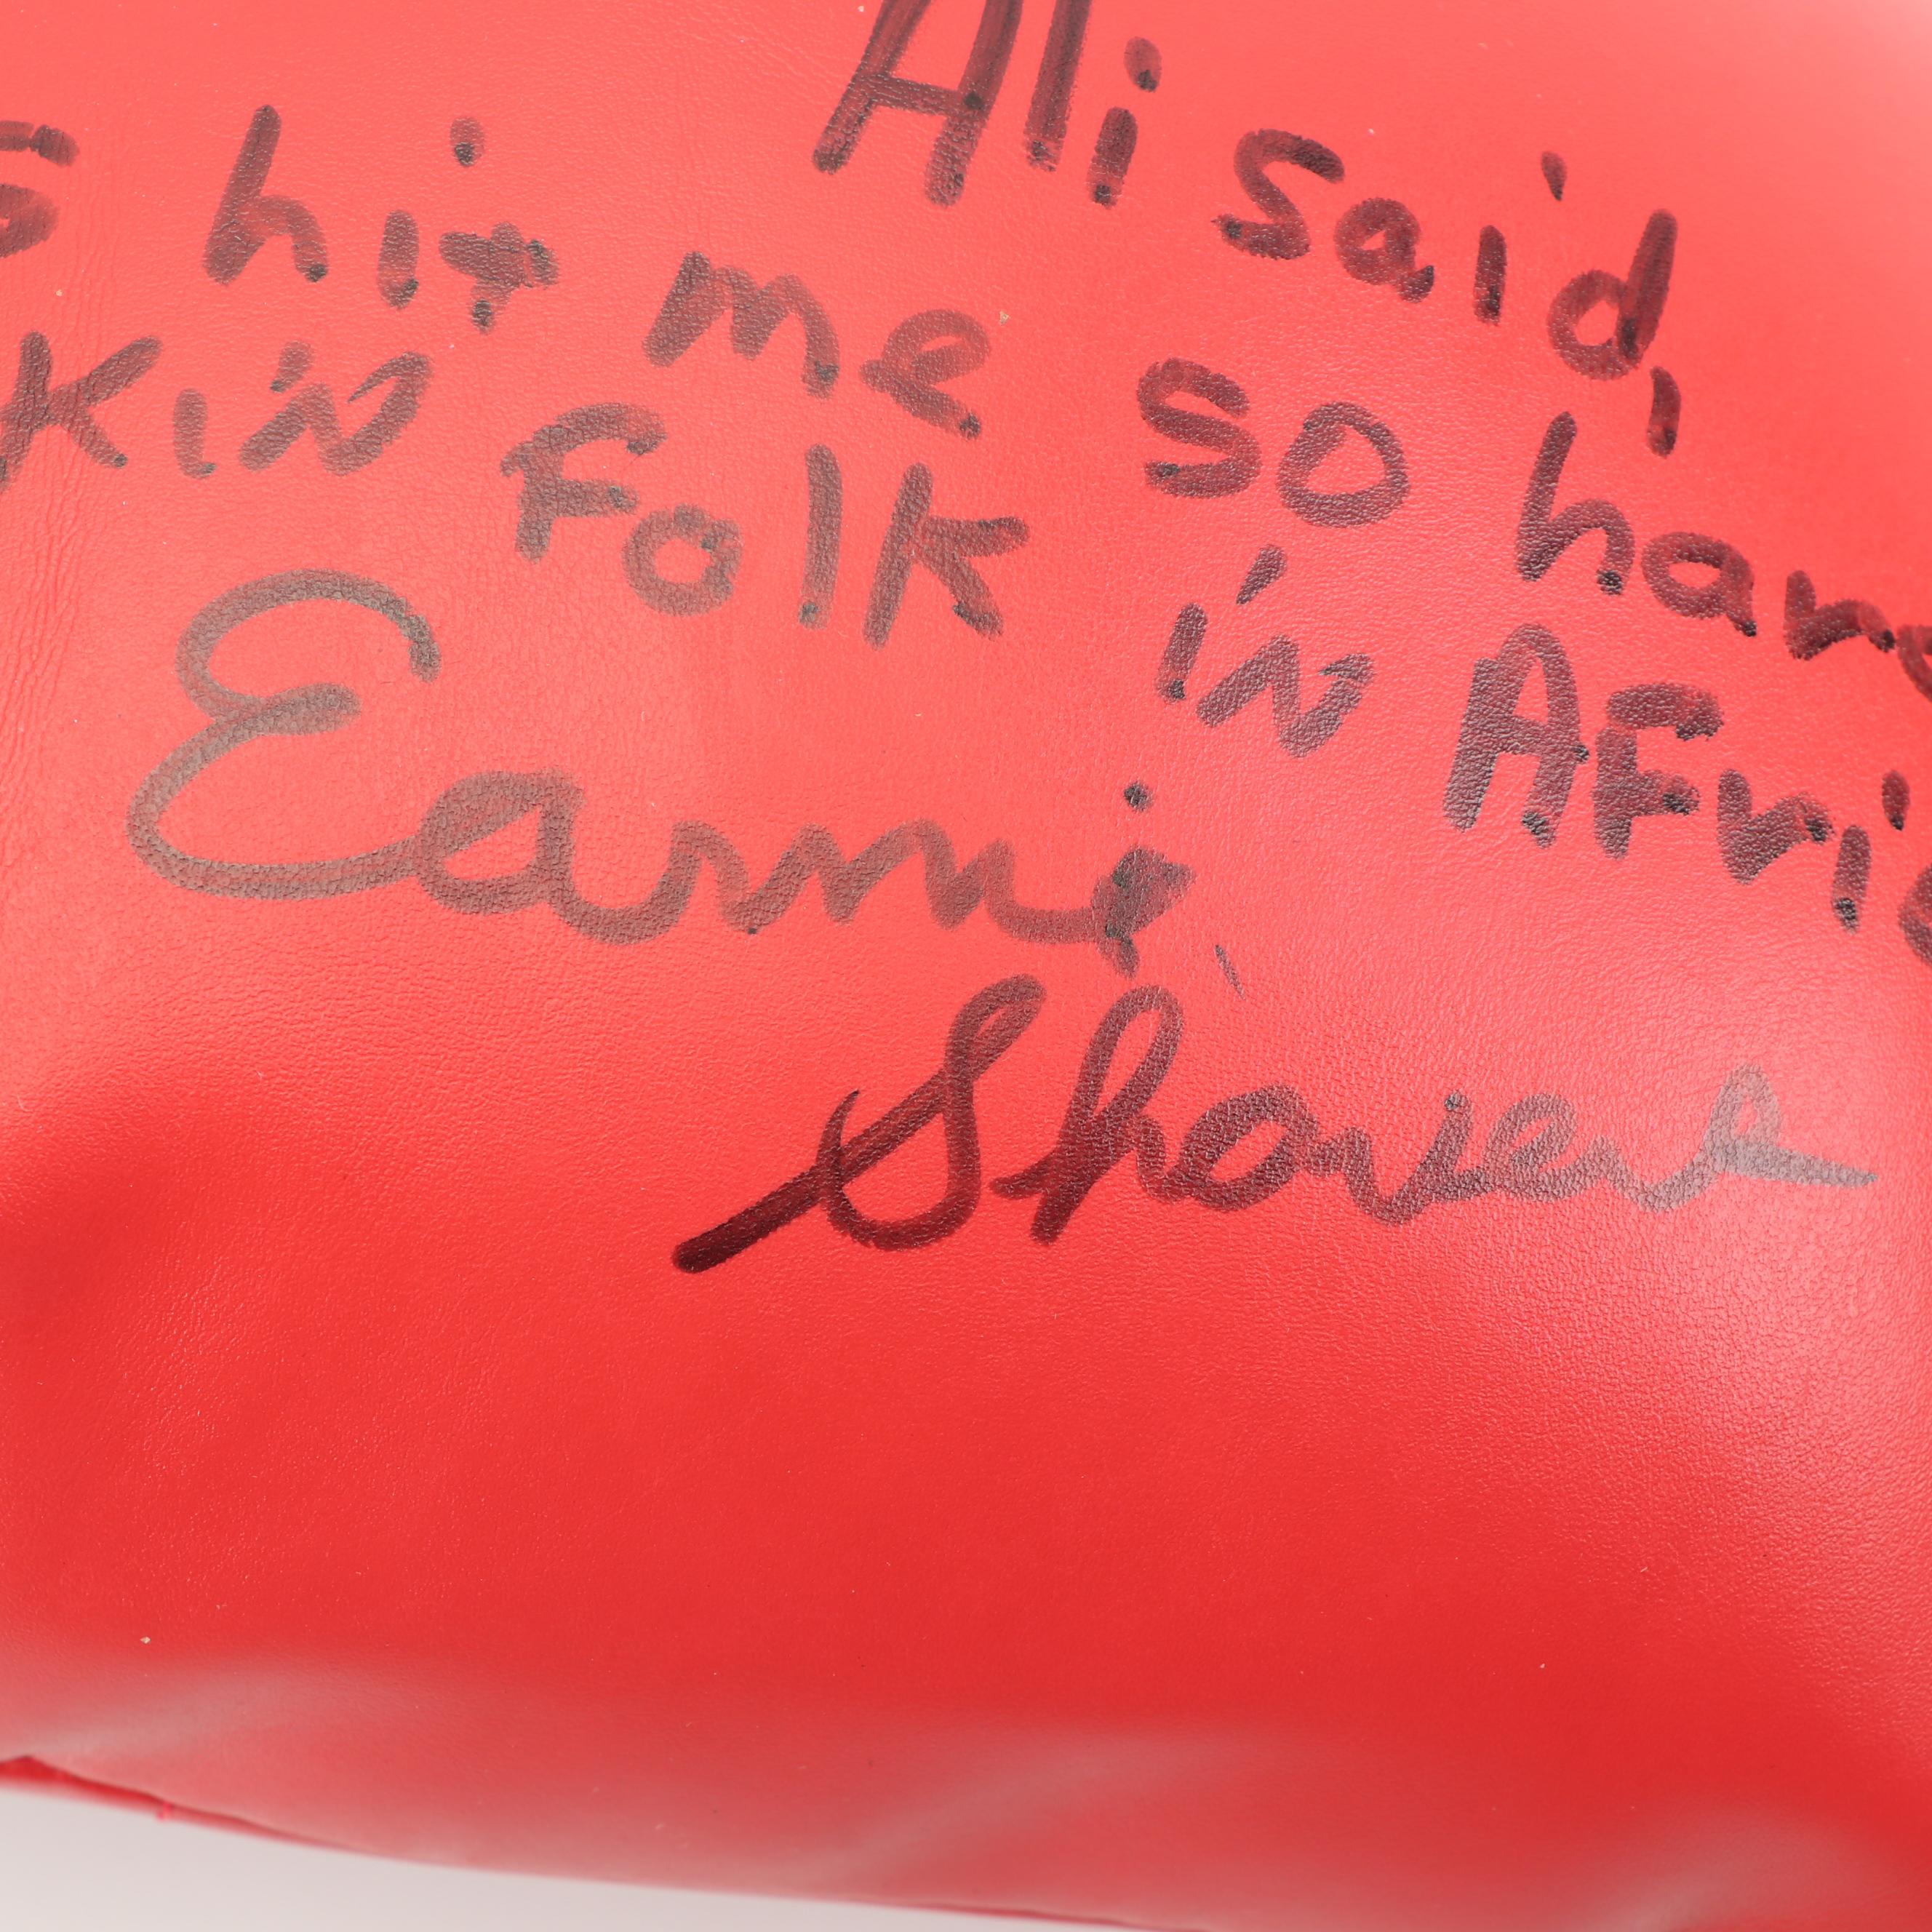 Ali said,
s hit me so har
Kin Folk in Afric
Earnie
Shavers